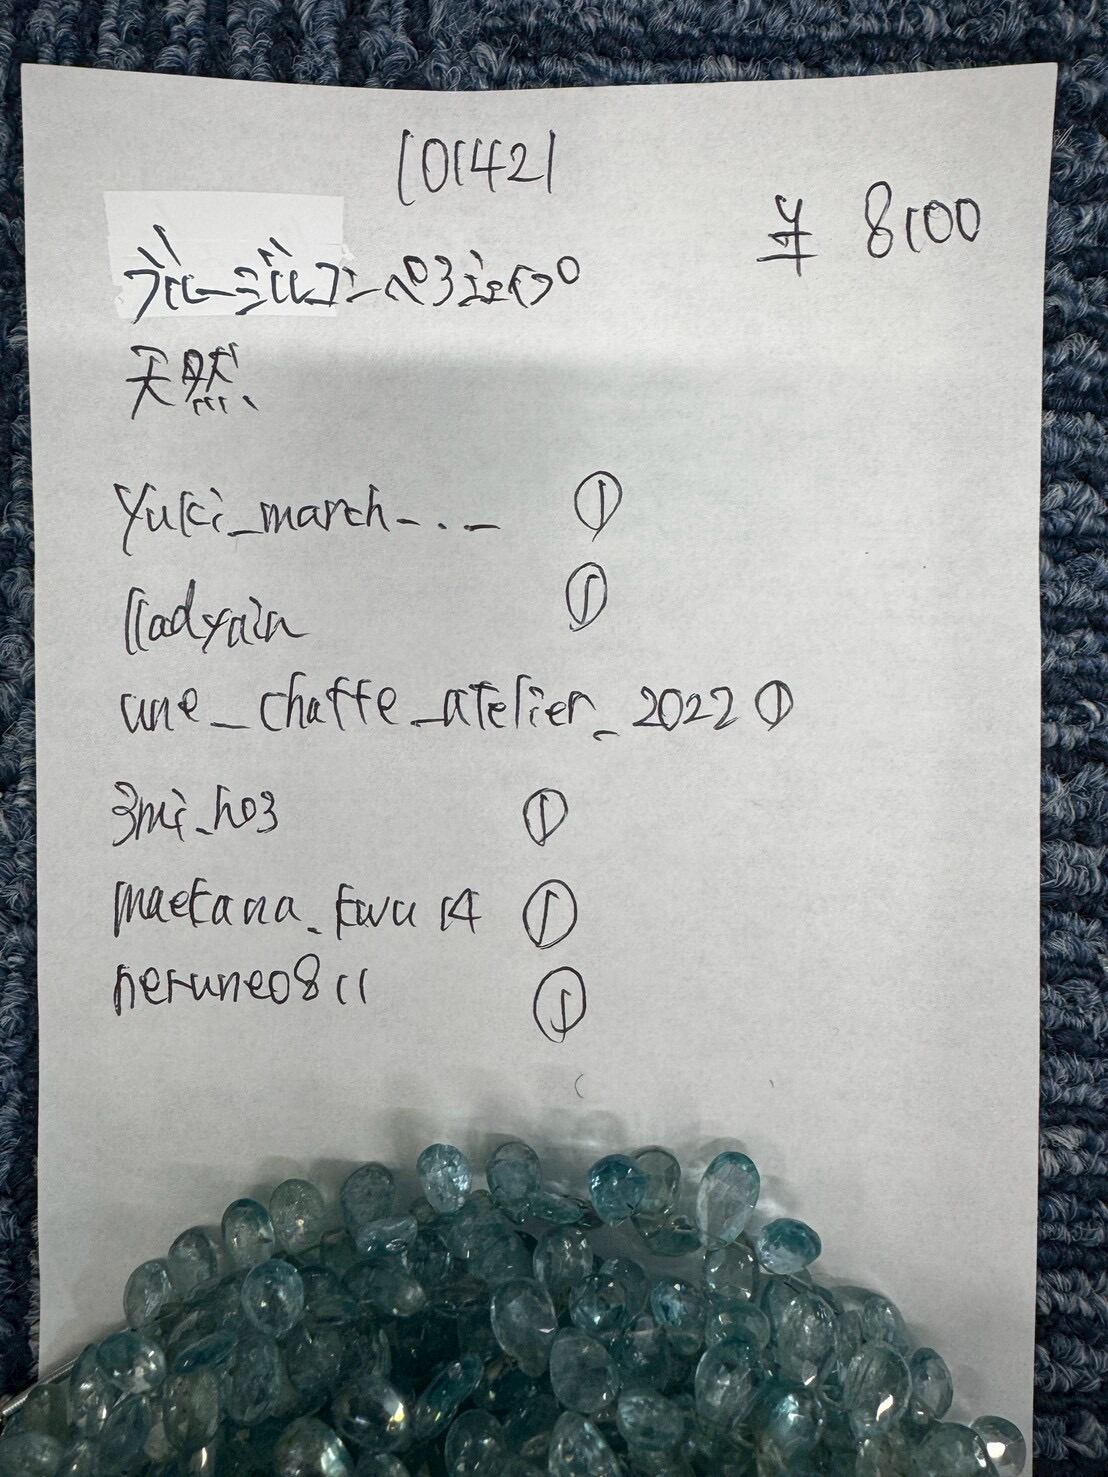 101421
¥ 8100
天然
yuki_march-.._ ①
lladyain ①
une_chatte_atelier_2022 ①
3mi_ho3 ①
maekana_fwu14 ①
nerune0811 ①